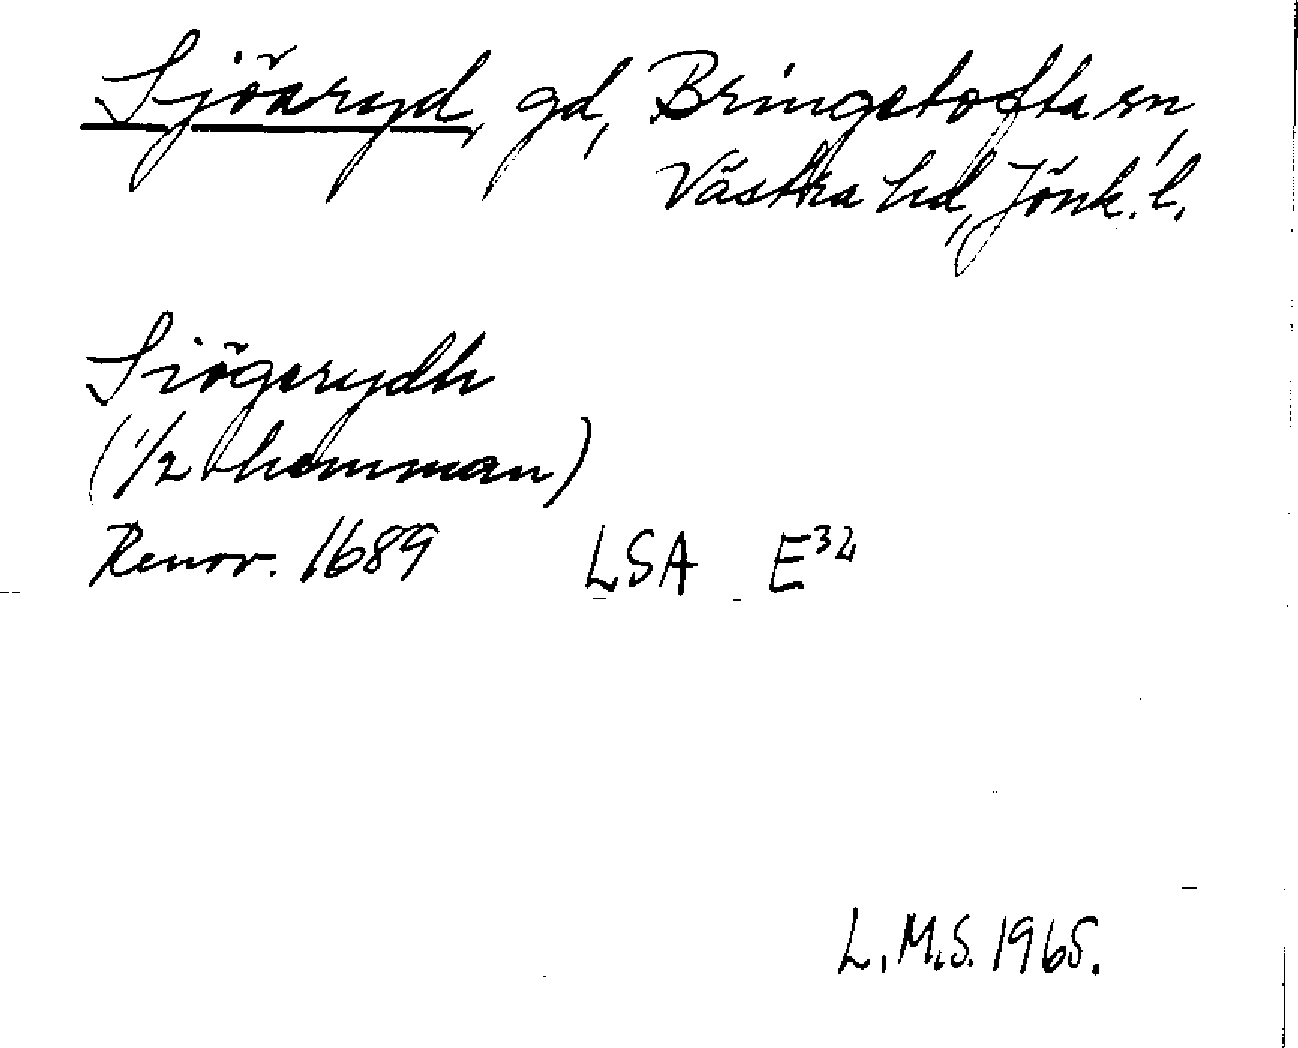 Sjöaryd, gd, Bringetofta sn,
Västra hd, Jönk. l.
Siögerydh
(1/2 hemman)
Renov. 1689 LSA E³⁴
L.M.S. 1965.